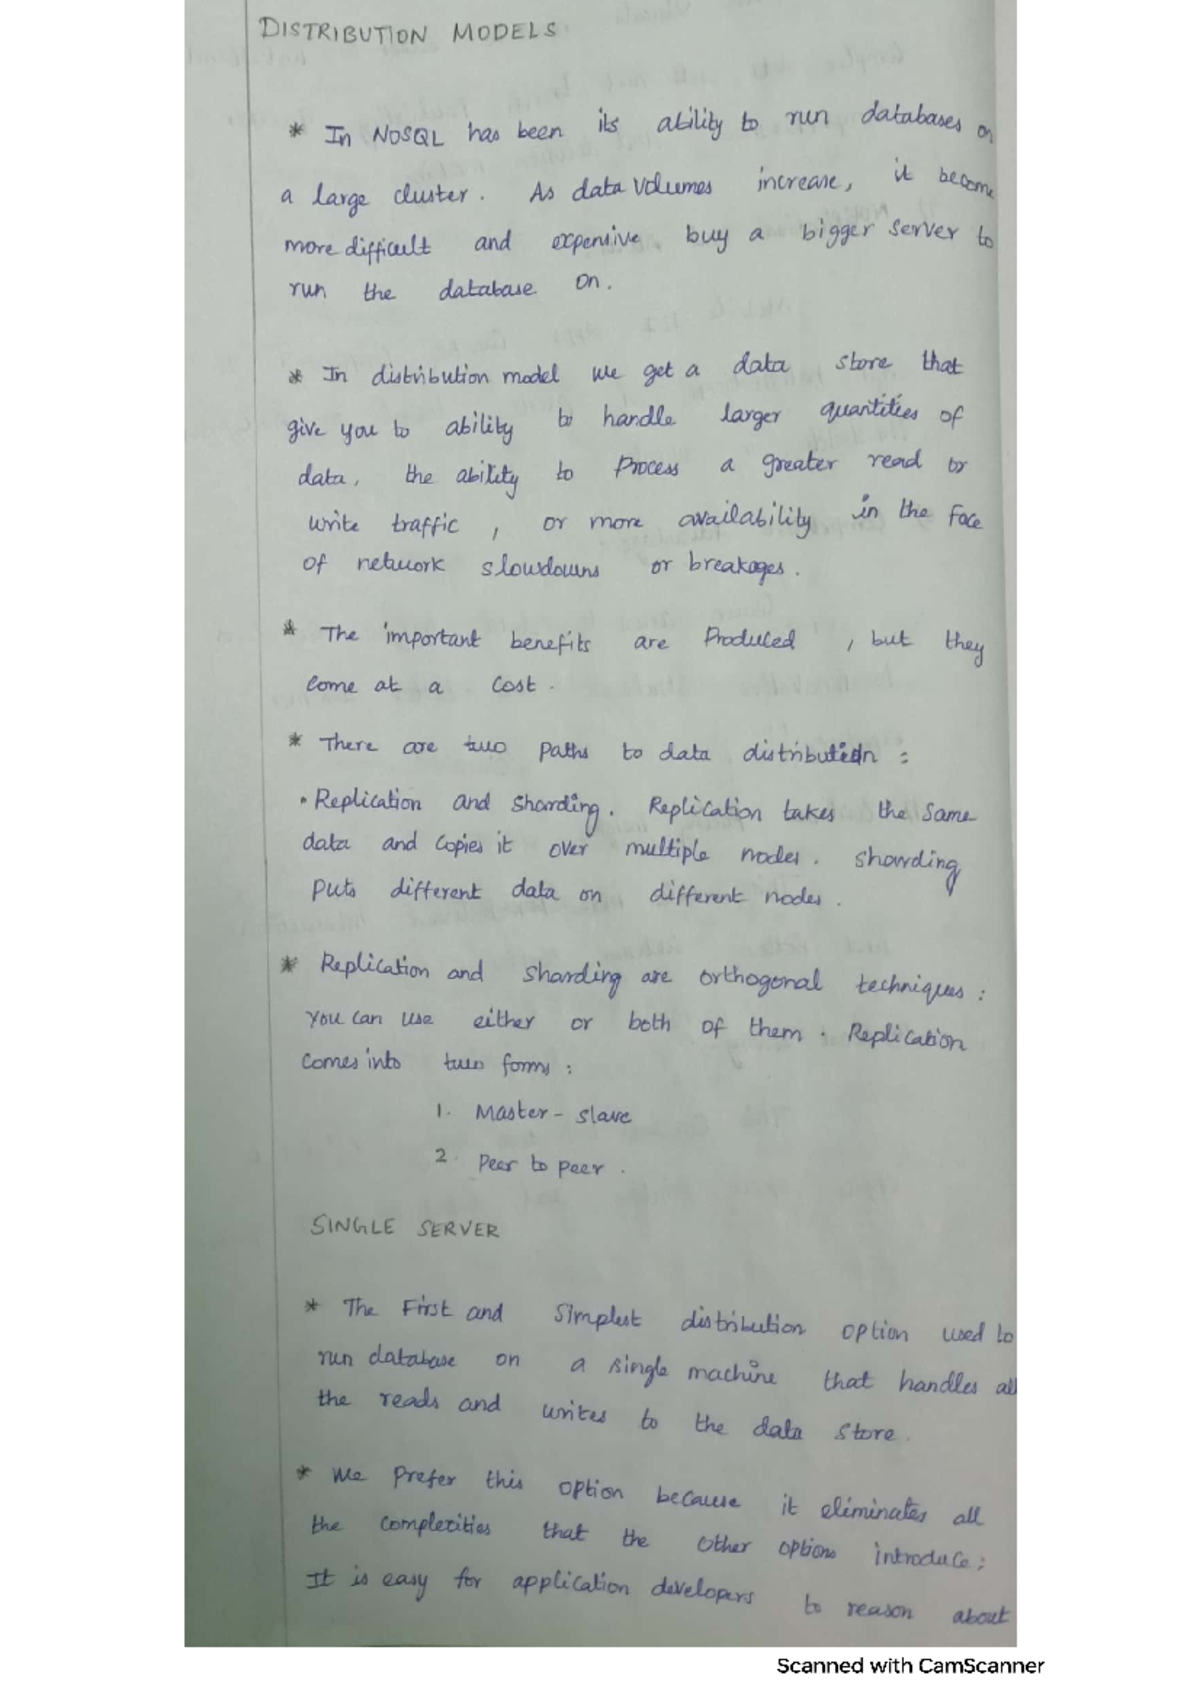 DISTRIBUTION MODELS
* In NOSQL has been its ability to run databases on
a large cluster. As data volumes increase, it become
more difficult and expensive buy a bigger server to
run the database on.
* In distribution model we get a data store that
give you to ability to handle larger quantities of
data, the ability to Process a greater read or
write traffic, or more availability in the face
of network slowdowns or breakages.
* The important benefits are Produced, but they
come at a cost.
* There are two paths to data distribution:
• Replication and sharding. Replication takes the same
data and copies it over multiple nodes. sharding
puts different data on different nodes.
* Replication and sharding are orthogonal techniques:
you can use either or both of them. Replication
comes into two forms:
1. Master-slave
2. Peer to peer.
SINGLE SERVER
* The First and Simplest distribution option used to
run database on a single machine that handles all
the reads and writes to the data store.
* We Prefer this option because it eliminates all
the complexities that the other options introduce;
It is easy for application developers to reason about
Scanned with CamScanner